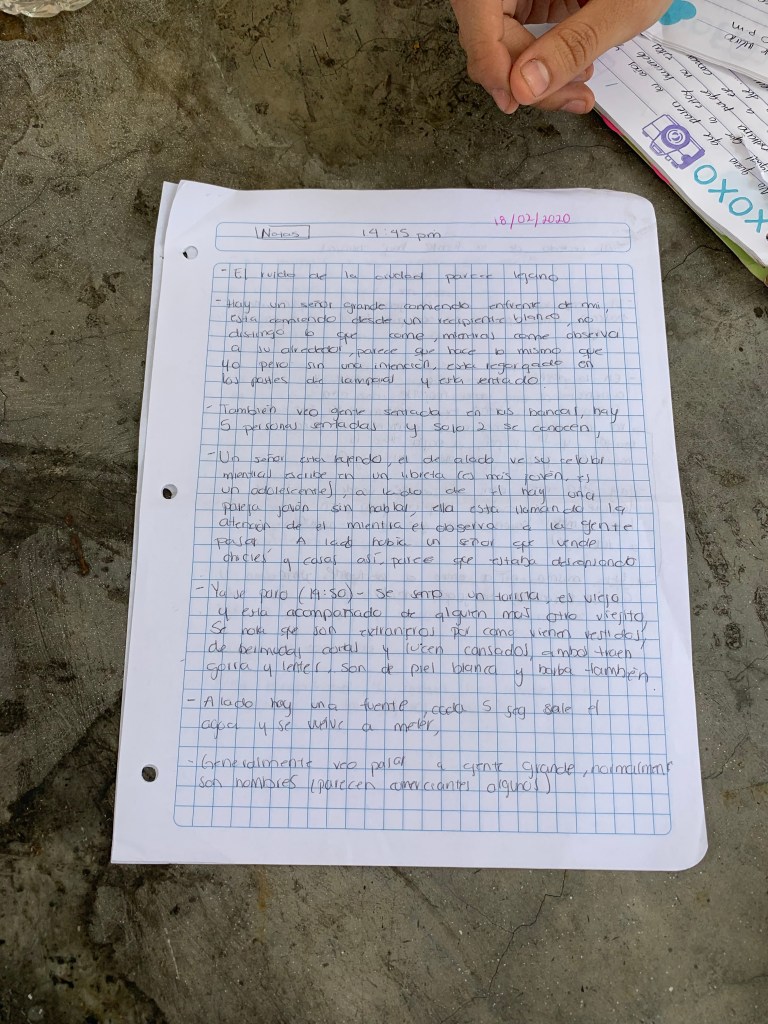 18/02/2020
Notas 14:45 pm
- El ruido de la ciudad parece lejano
- Hay un señor grande comiendo enfrente de mi,
esta comiendo desde un recipiente blanco, no
distingo lo que come, mientras come observa
a su alrededor, parece que hace lo mismo que
yo pero sin una intención, esta recargado en
los postes de lamparas y esta sentado.
- También veo gente sentada en las bancas, hay
5 personas sentadas y solo 2 se conocen,
- Un señor esta leyendo, el de alado ve su celular
mientras escribe en un libreta (o mas joven, es
un adolescente), a lado de el hay una
pareja joven sin hablar, ella esta llamando la
atención de el mientra el observa a la gente
pasar. A lado había un señor que vende
dulces y cosas así, parece que estaba descansando
- Ya se paro (14:50) - Se sento un turista, es viejo
y esta acompañado de alguien mas otro viejito,
Se nota que son extranjeros por como vienen vestidos,
de bermudas caras y lucen cansados, ambos traen
gorra y lentes, son de piel blanca y barba también
- A lado hay una fuente, cada 5 seg sale el
agua y se vuelve a meter,
- Generalmente veo pasar a gente grande, normalment
son hombres (parecen comerciantes algunos)
XOXO